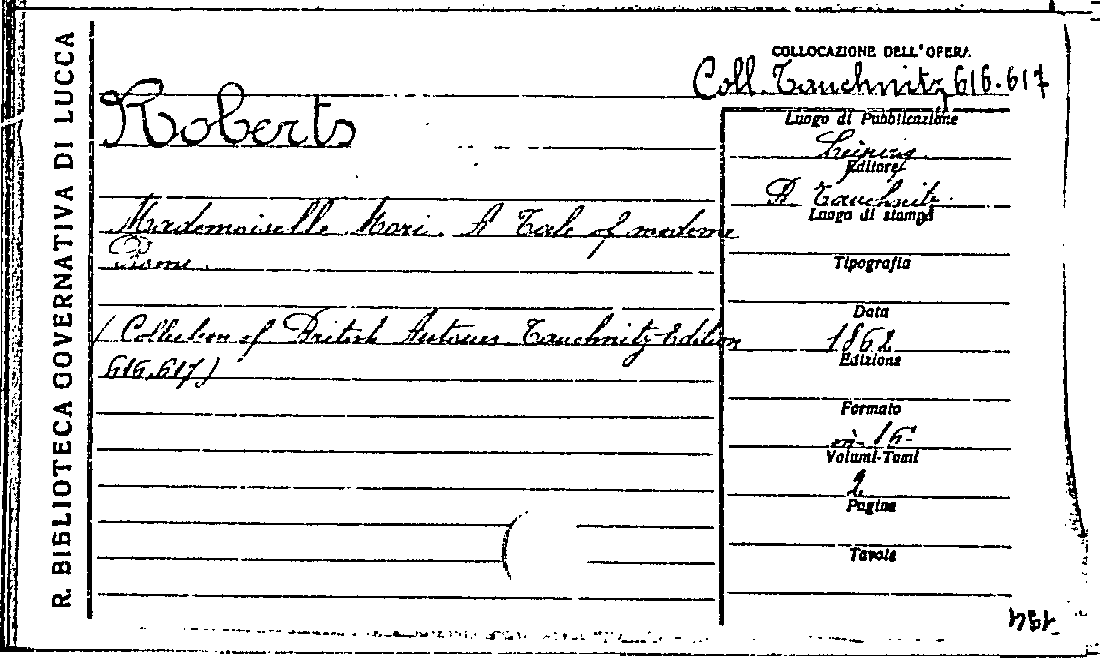 R. BIBLIOTECA GOVERNATIVA DI LUCCA
COLLOCAZIONE DELL'OPERA
Coll. Tauchnitz 616.617
Roberts
Mademoiselle Mori. A Tale of moderne
Rome.
(Collection of British Autours Tauchnitz-Edition
616.617)
Luogo di Pubblicazione
Leipzig
Editore
B Tauchnitz
Luogo di stampa
Tipografia
Data
1862
Edizione
Formato
in-16°
Volumi-Tomi
2
Pagine
Tavole